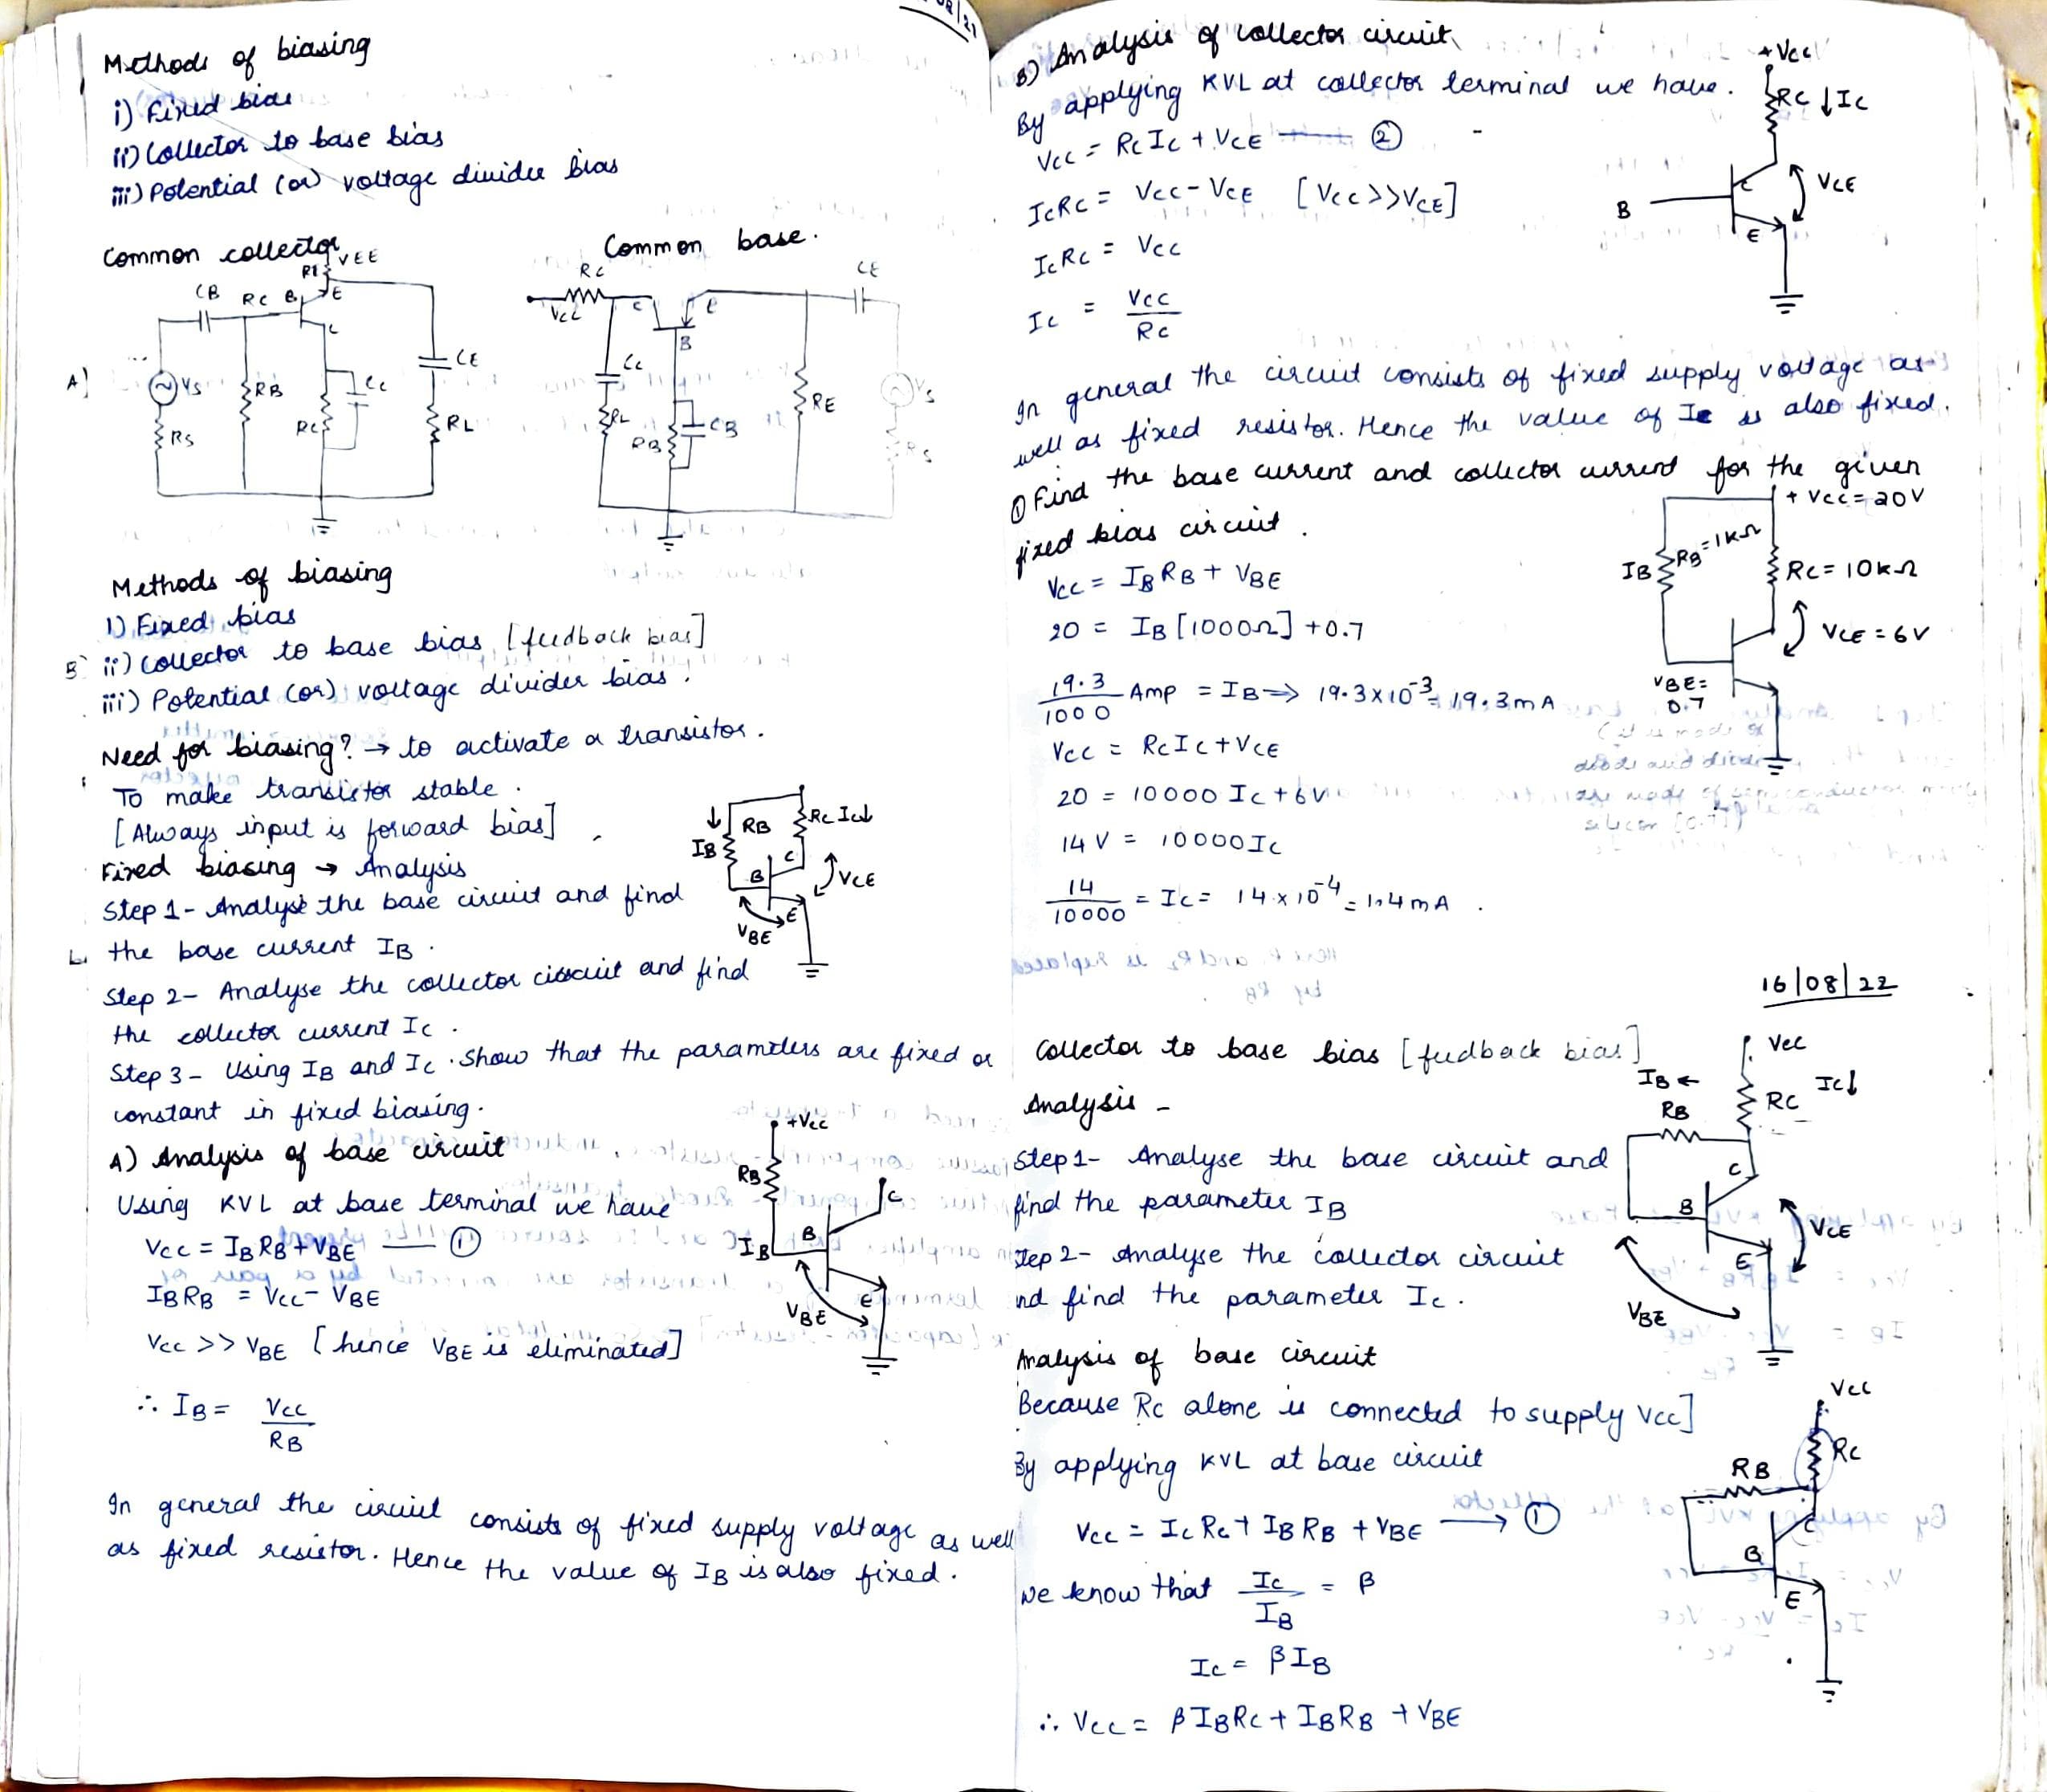 Methods of biasing
i) Fixed bias
ii) Collector to base bias
iii) Potential (or) voltage divider bias
Common collector
Common base.
VEE
RE
CB RC B E
C
A)
VS
RS
RB
RC
CC
CE
RL
RC
VCC
C
E
B
CE
CC
RL
RB
CB
RE
VS
RS
Methods of biasing
1) Fixed bias
ii) Collector to base bias [feedback bias]
iii) Potential (or) voltage divider bias.
Need for biasing? → to activate a transistor.
To make transistor stable.
[Always input is forward bias]
Fixed biasing → Analysis
Step 1- Analyse the base circuit and find
the base current IB.
Step 2- Analyse the collector circuit and find
the collector current IC.
Step 3- Using IB and IC. Show that the parameters are fixed or
constant in fixed biasing.
↓ RB RC IC↓
IB
B C
VCE
E
VBE
A) Analysis of base circuit
Using KVL at base terminal we have
VCC = IBRB + VBE —— ①
IBRB = VCC - VBE
VCC >> VBE [hence VBE is eliminated]
∴ IB = VCC
RB
+VCC
RB
C
B
IB
E
VBE
In general the circuit consists of fixed supply voltage as well
as fixed resistor. Hence the value of IB is also fixed.
B) Analysis of collector circuit
By applying KVL at collector terminal we have.
VCC = RCIC + VCE —— ②
ICRC = VCC - VCE [VCC>>VCE]
ICRC = VCC
IC = VCC
RC
+VCC
RC ↓IC
C
VCE
B
E
In general the circuit consists of fixed supply voltage as
well as fixed resistor. Hence the value of IC is also fixed.
① Find the base current and collector current for the given
fixed bias circuit.
VCC = IBRB + VBE
20 = IB [1000Ω] +0.7
19.3
1000 Amp = IB => 19.3x10⁻³ = 19.3mA
VCC = RCIC+VCE
20 = 10000 IC+6V
14 V = 10000IC
14
10000 = IC = 14x10⁻⁴ = 1.4mA.
+ VCC=20V
IB RB=1kΩ
RC=10kΩ
VCE=6V
VBE=
0.7
16/08/22
Collector to base bias [feedback bias]
Analysis -
Step 1- Analyse the base circuit and
find the parameter IB
Step 2- Analyse the collector circuit
nd find the parameter IC.
VCC
IB ←
RB
RC IC↓
C
B
VCE
E
VBE
Analysis of base circuit
Because RC alone is connected to supply VCC]
By applying KVL at base circuit
VCC = ICRC + IBRB + VBE → ①
We know that IC
IB = β
IC = βIB
∴ VCC = βIBRC + IBRB + VBE
VCC
RC
RB
C
B
E